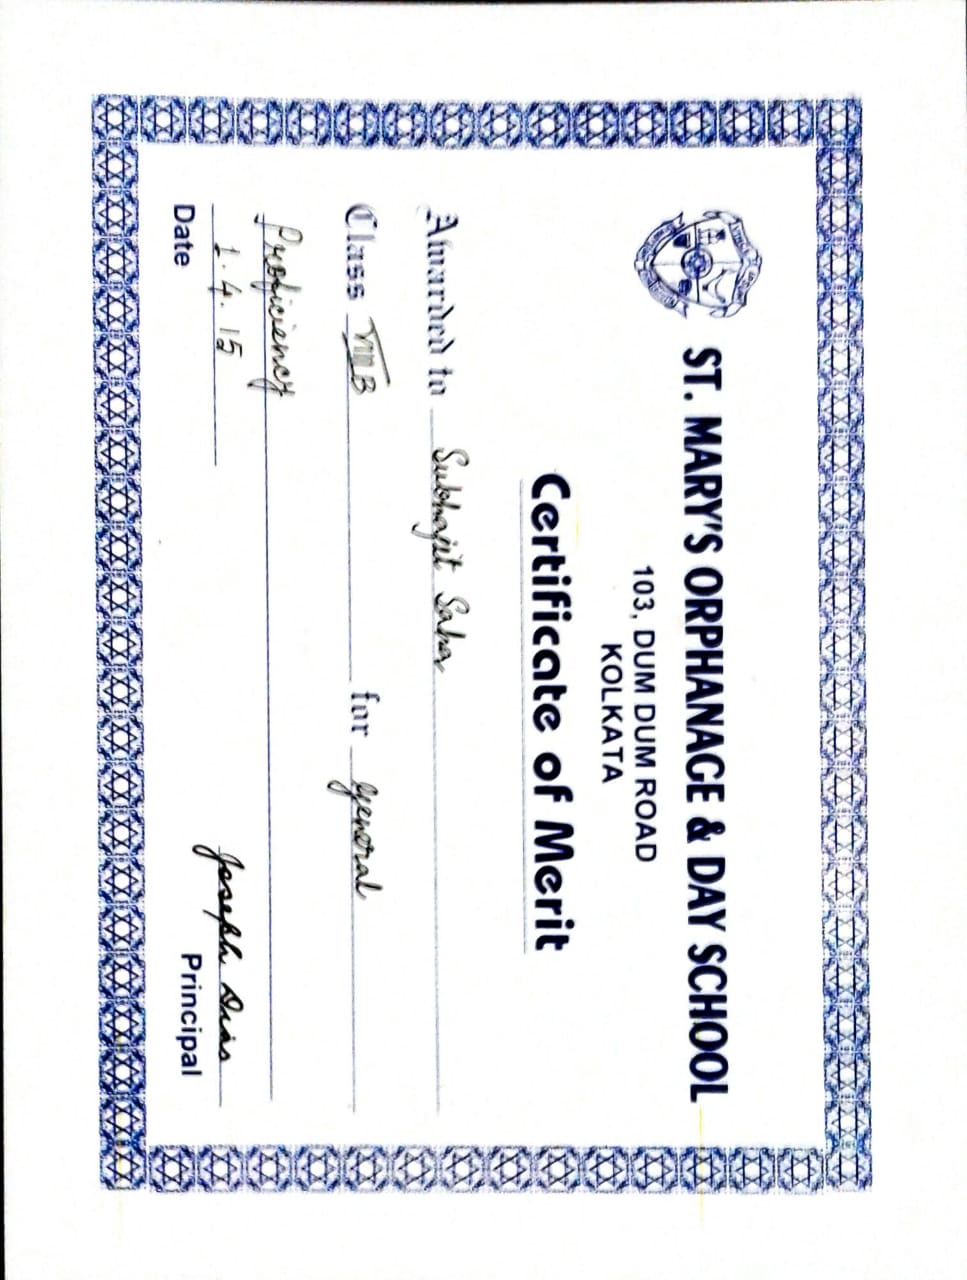 ST. MARY'S ORPHANAGE & DAY SCHOOL
103, DUM DUM ROAD
KOLKATA
Certificate of Merit
Awarded to Subhajit Saha
Class VIII B for General
Proficiency
1.4.15 Joseph Dias
Date Principal